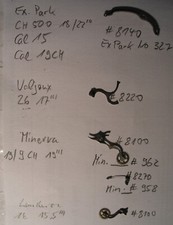 Ex. Park
CH 500 13/22'''
Cal 15
Cal 19CH
# 8140
Ex Park No 327
Valjoux
26 17'''
# 8220
Minerva
19/9 CH 19'''
# 8100
Min. # 962
# 8270
Min. # 958
15.5'''
# 8100